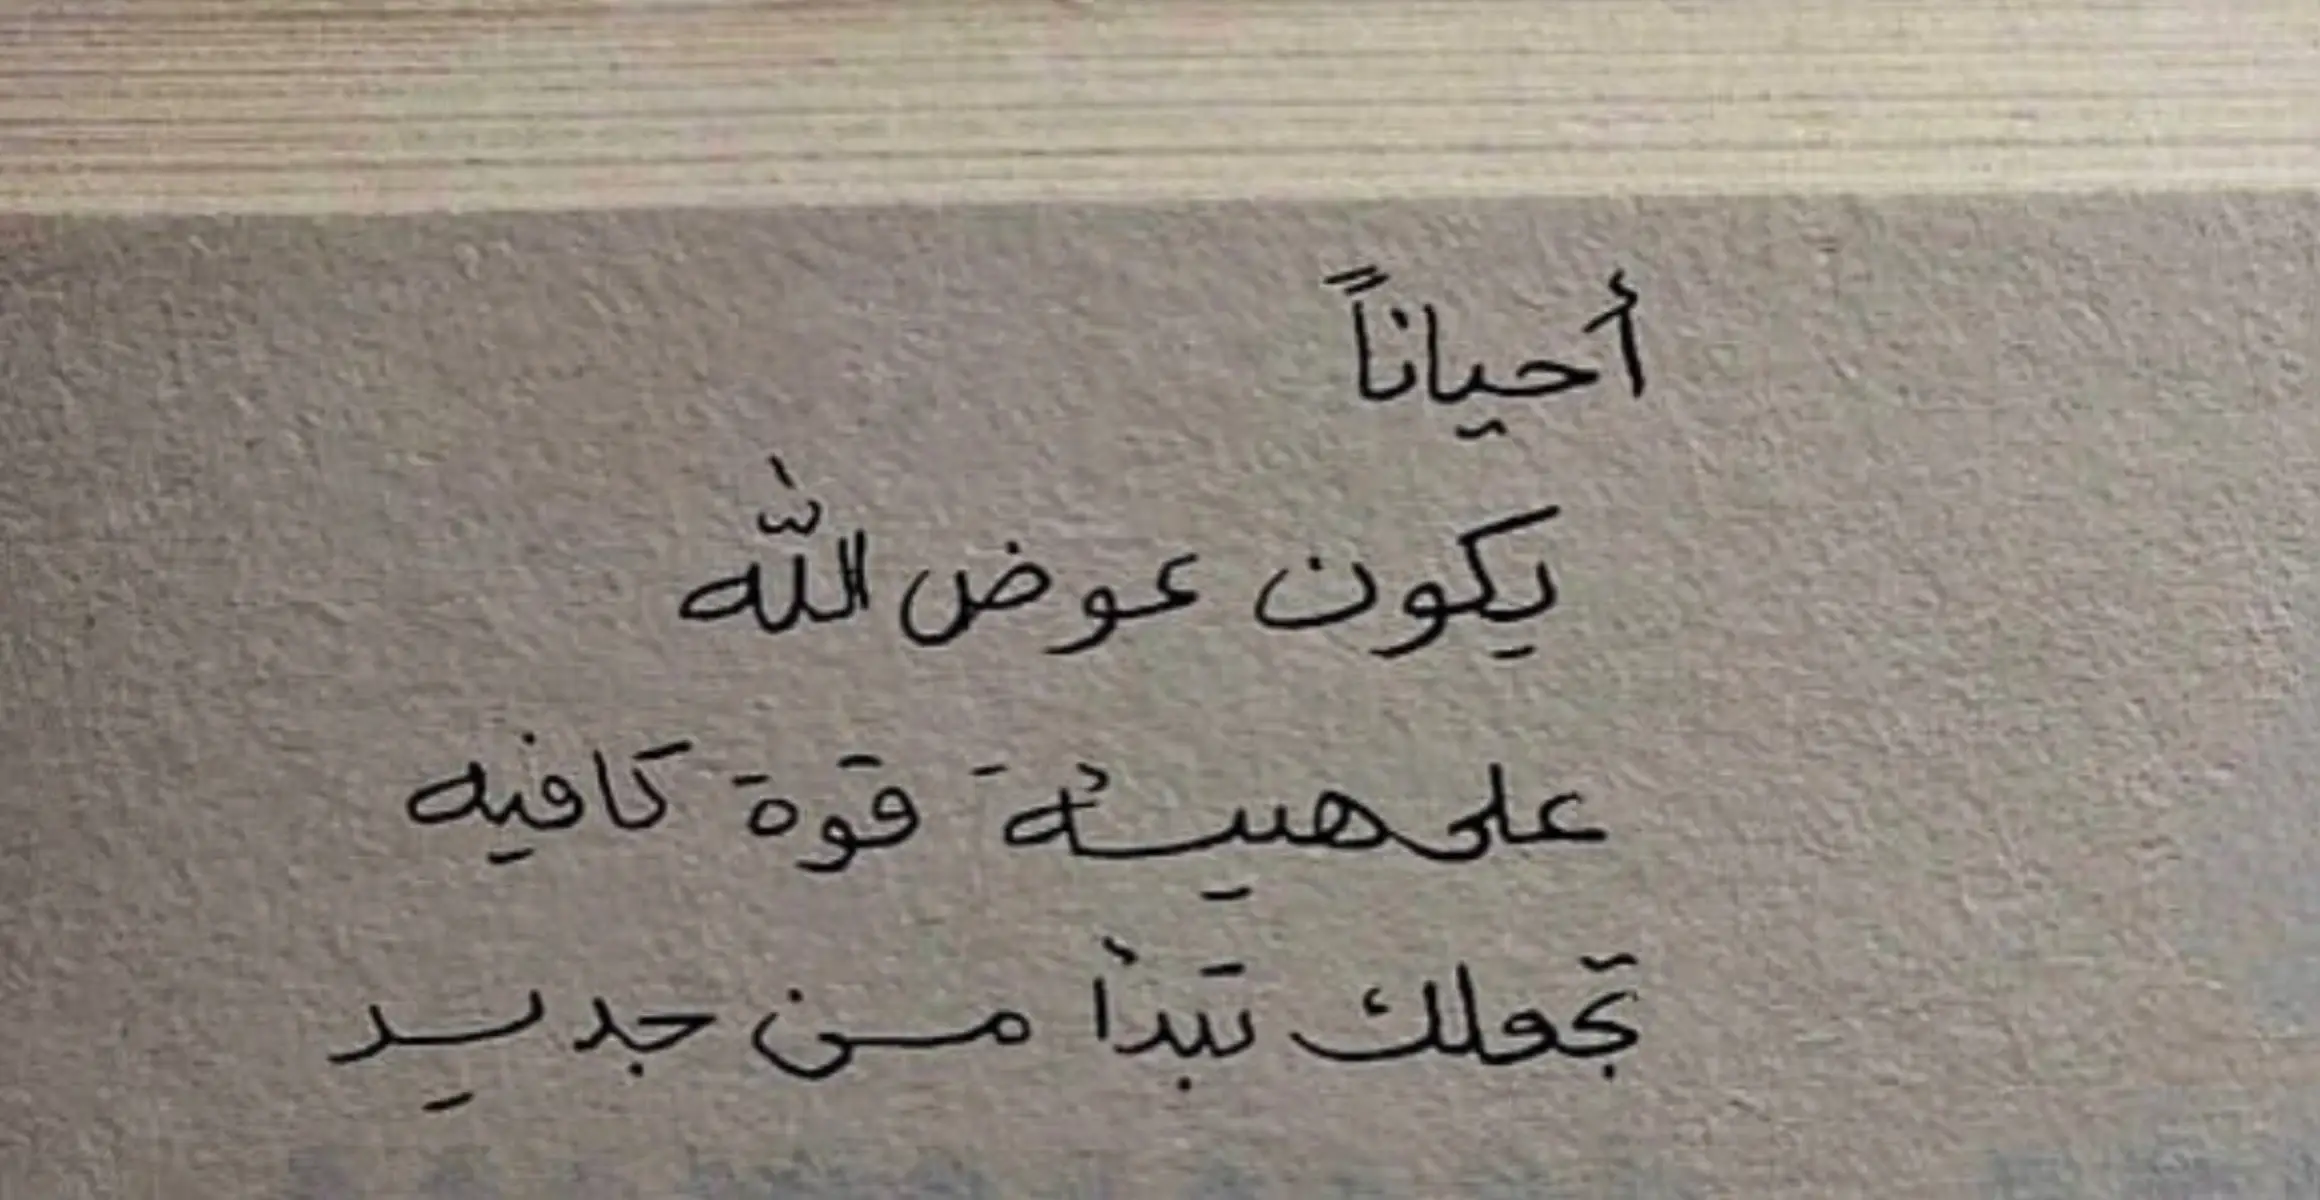 أحياناً
يكون عوض الله
على هيئة قوة كافيه
تجعلك تبدأ من جديد